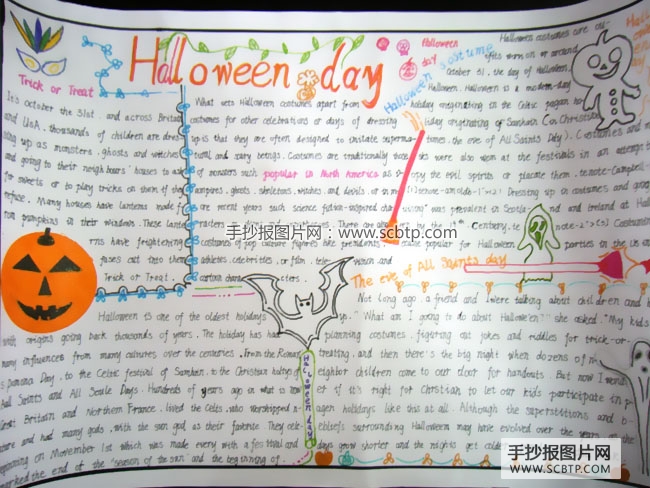 Halloween day
Trick or Treat
It's october the 31st, and across Britain
and USA, thousands of children are dress
ing up as monsters, ghosts and witches
and going to their neighbours' houses to ask
for sweets or to play tricks on them if they
refuse. Many houses have lanterns made
from pumpkins in their windows. These lant
erns have frighten
faces cut into them
Trick or Treat.
What sets Halloween costumes apart from
costumes for other celebrations or days of dressing
up is that they are often designed to imitate superna
tural and scary beings. Costumes are traditionally those
of monsters such popular in North America as
vampires, ghosts, skeletons, witches, and devils, or in mo
re recent years such science fiction-inspired
costumes of pop culture figures like presidents
athletes, celebrities, or film, tele vision and
cartoon chara cters.
Halloween
day
Halloween's costume
Halloween costumes are
worn on or around
October 31, the day of Halloween.
Halloween is a modern-day
holiday originating in the Celtic pagan
holiday of Samhain (in Christian
times, the eve of All Saints Day). Costumes and
were also worn at the festivals in an attempt
the evil spirits or placate them.
Dressing up in costumes and going
was prevalent in Scotland and Ireland at Hallow
Century.
popular for Halloween parties in the US
The eve of All Saints day
Halloween is one of the oldest holidays
with origins going back thousands of years. The holiday has had
many influences from many cultures over the centuries. From the Roman's
Pomona Day, to the Celtic festival of Samhain, to the Christian holidays
All Saints and All Souls Days. Hundreds of years ago in what is now
Great Britain and Northern France, lived the Celts, who worshipped
nature and had many gods, with the sun god as their favorite. They cele
on November 1st which was made every with a festival and
marked the end of the "season of the sun" and the beginning of
Not long ago, a friend and I were talking about children and
"What am I going to do about Halloween?" she asked. "My kids
planning costumes, figuring out jokes and riddles for trick-or-
treating, and then there's the big night when dozens of
neighbor children come to our door for handouts. But now I wond
er if it's right for Christian to let our kids participate in
pagen holidays like this at all. Although the superstitions and
beliefs surrounding Halloween may have evolved over the years
days grow shorter and the nights get colder
HALLOWEEN DAY
手抄报图片网:www.scbtp.com
手抄报图片网
WWW.SCBTP.COM